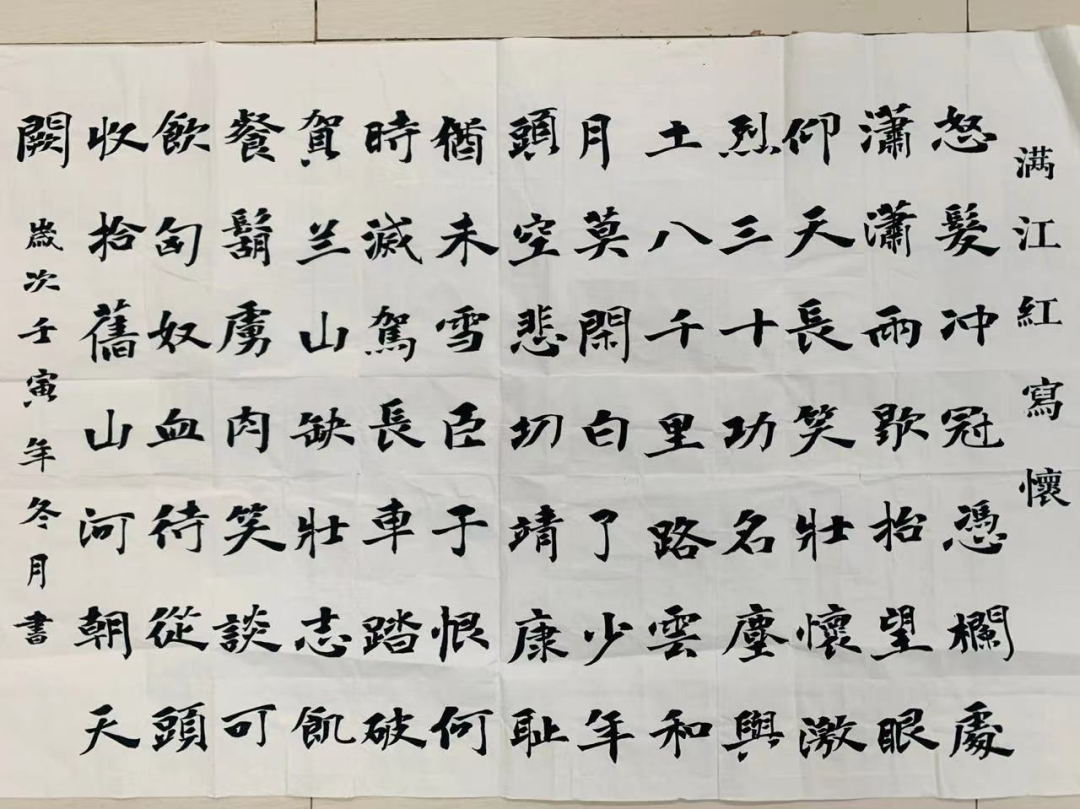 满江紅寫懷
怒髮冲冠憑欄處
瀟瀟雨歇抬望眼
仰天長笑壯懷激
烈三十功名塵與
土八千里路雲和
月莫閑白了少年
頭空悲切靖康耻
猶未雪臣于恨何
時滅駕長車踏破
賀兰山缺壯志飢
餐鬍虜肉笑談可
飲匈奴血待從頭
收拾舊山河朝天
闕
歲次壬寅年冬月書